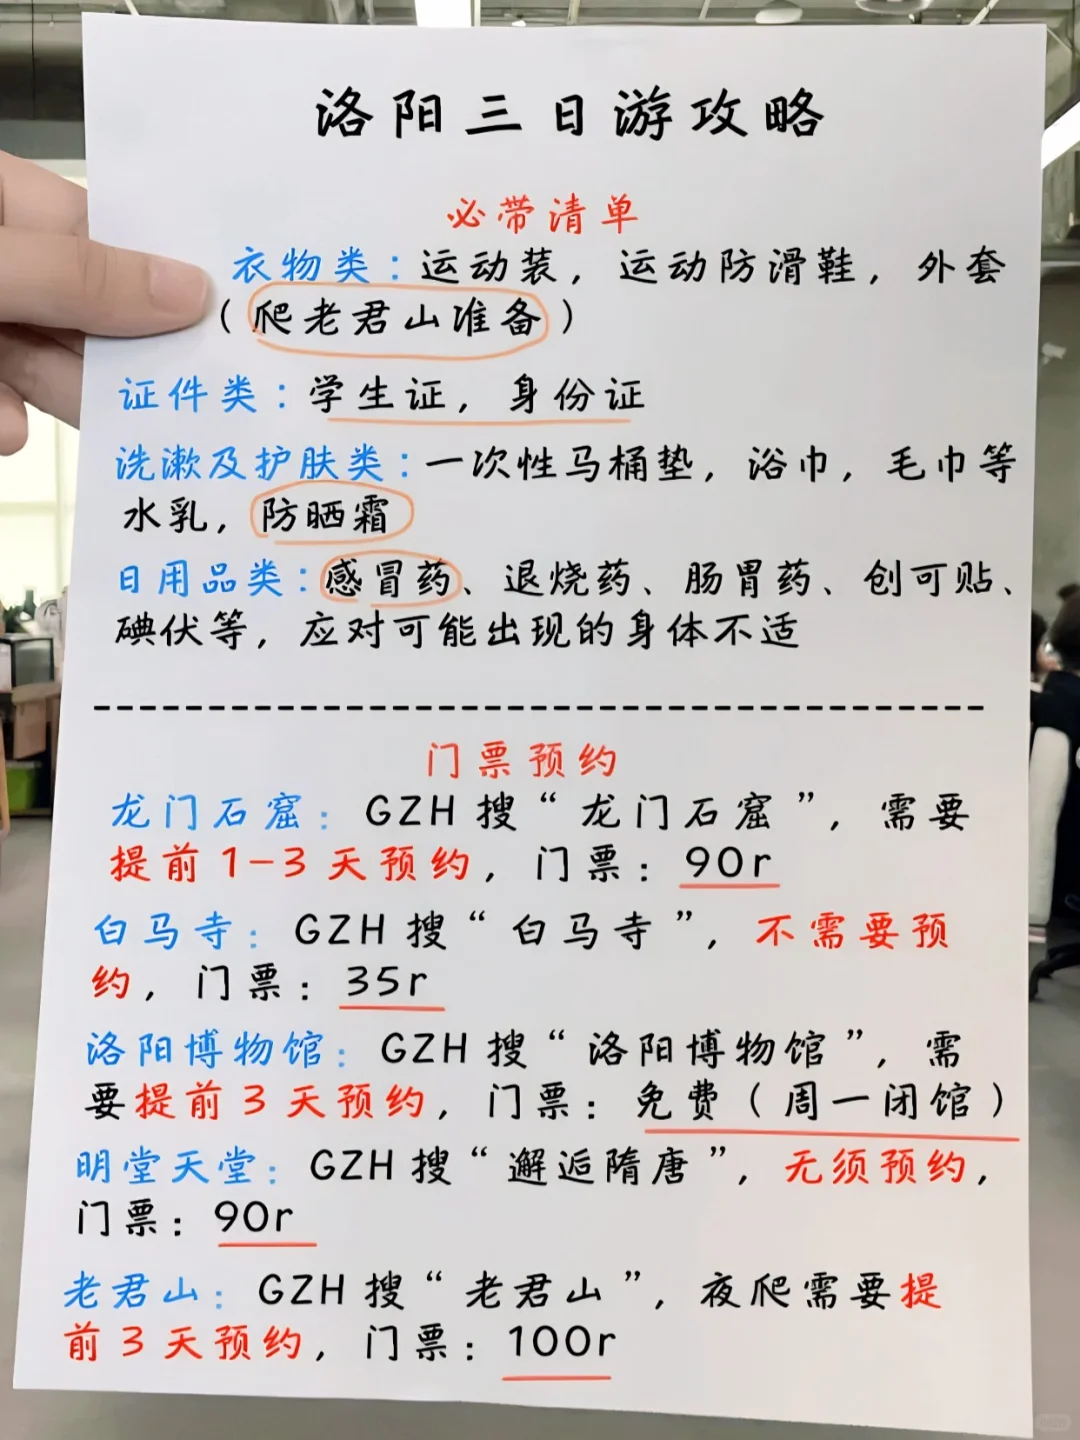 洛阳三日游攻略
必带清单
衣物类：运动装，运动防滑鞋，外套
（爬老君山准备）
证件类：学生证，身份证
洗漱及护肤类：一次性马桶垫，浴巾，毛巾等
水乳，防晒霜
日用品类：感冒药、退烧药、肠胃药、创可贴、
碘伏等，应对可能出现的身体不适
门票预约
龙门石窟：GZH搜“龙门石窟”，需要
提前1-3天预约，门票：90r
白马寺：GZH搜“白马寺”，不需要预
约，门票：35r
洛阳博物馆：GZH搜“洛阳博物馆”，需
要提前3天预约，门票：免费（周一闭馆）
明堂天堂：GZH搜“邂逅隋唐”，无须预约，
门票：90r
老君山：GZH搜“老君山”，夜爬需要提
前3天预约，门票：100r